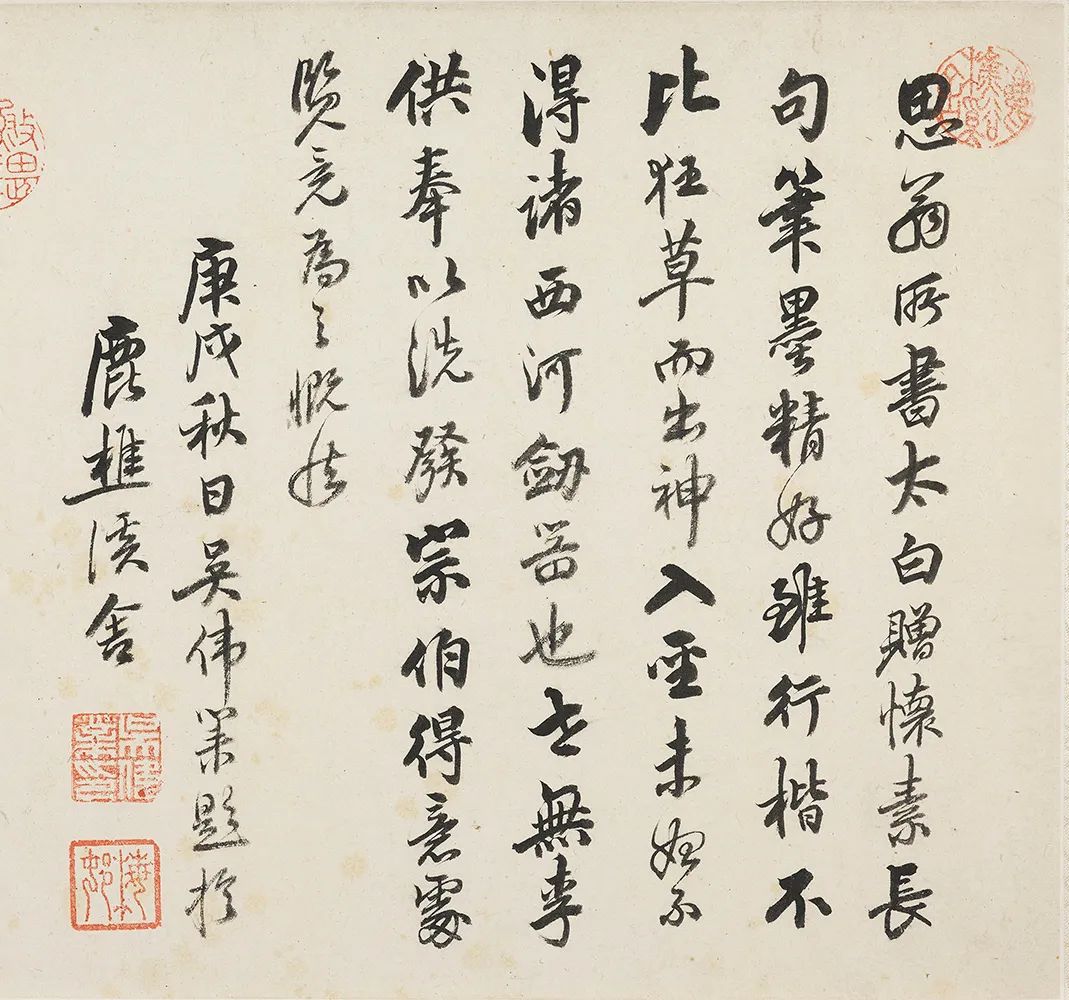 思翁所書太白贈懷素長
句筆墨精好雖行楷不
比狂草而出神入聖未始不
得諸西河劍器也世無李
供奉以洗發宗伯得意處
覽竟為之慨然
庚戌秋日吳偉業題於
鹿樵溪舍
吳偉業印
梅邨